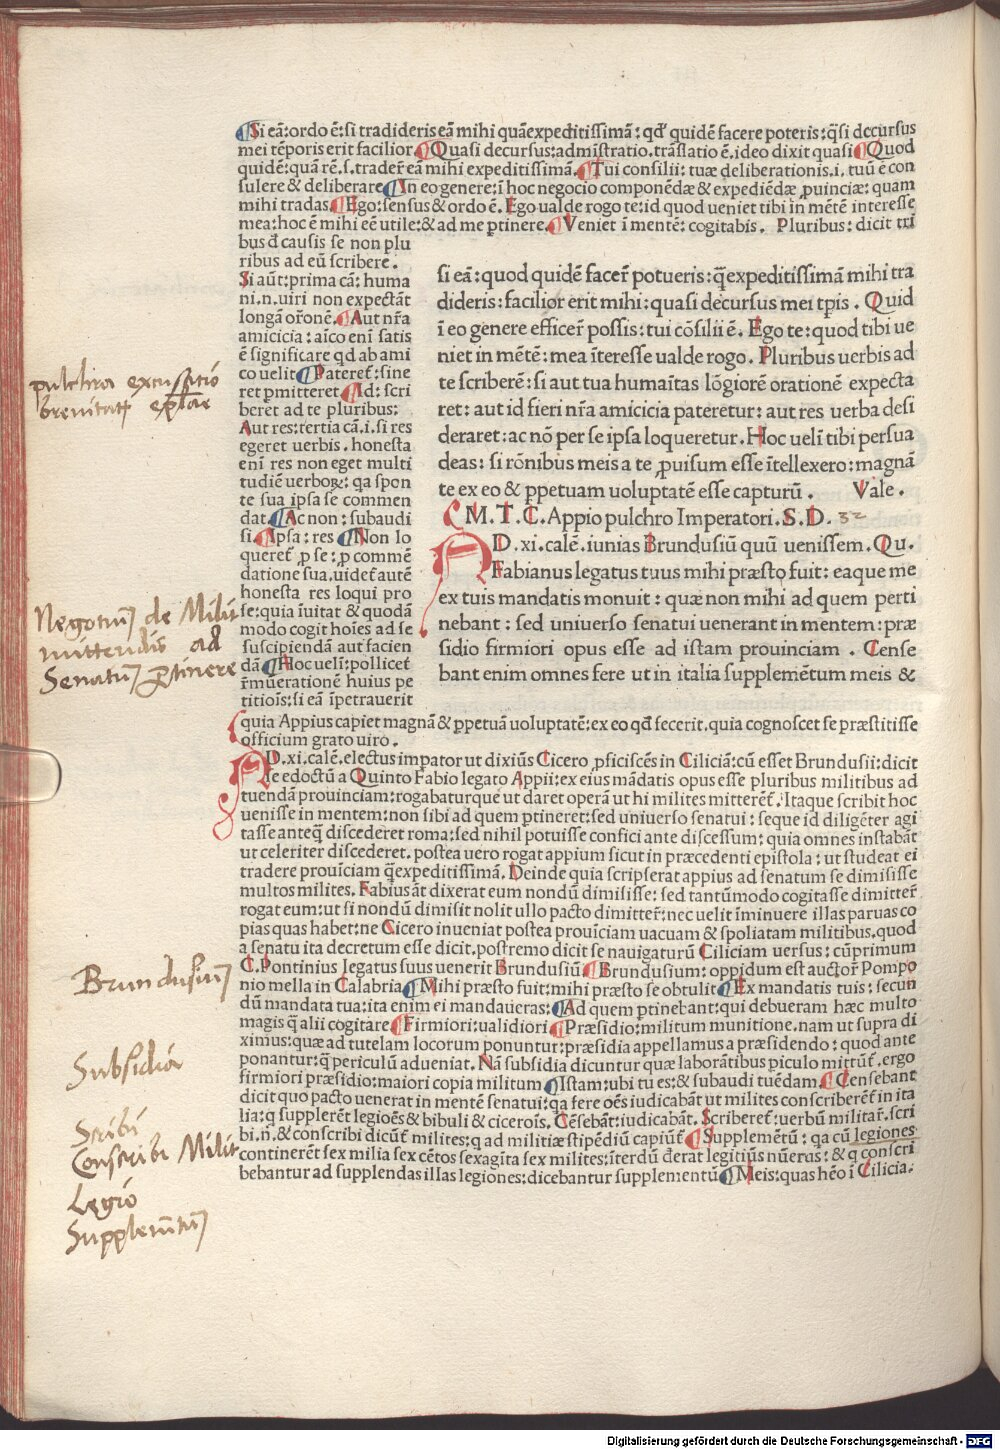 Si eã: ordo ē: si tradideris eã mihi quãexpeditissimã: qd' quidē facere poteris: q̃si decursus
mei tēporis erit facilior Quasi decursus: admĩstratio. trãslatio ē. ideo dixit quasi Quod
quidē: quã rē. s. trader̃ eã mihi expeditissimã. Tui consilii: tuæ deliberationis. i. tuū ē con
sulere & deliberare In eo genere: ĩ hoc negocio componēdæ & expediēdæ ꝓuinciæ: quam
mihi tradas. Ego: sensus & ordo ē. Ego ualde rogo te: id quod ueniet tibi in mētē interesse
mea: hoc ē mihi eē utile: & ad me ꝑtinere. Veniet ĩ mentē: cogitabis. Pluribus: dicit tri
bus đ causis se non plu
ribus ad eū scribere.
Si aūt: prima cã: huma
ni. n. uiri non expectãt
longã or̃onē. Aut nr̃a
amicicia: aĩco enĩ satis
ē significare qd ab ami
co uelit Pateret̃: sine
ret ꝑmitteret Ad: scri
beret ad te pluribus:
Aut res: tertia cã. i. si res
egeret uerbis. honesta
enĩ res non eget multi
tudiē uerboꝝ: qa spon
te sua ipsa se commen
dat. Ac non: subaudi
si. Ipsa: res Non lo
queret̃ ꝓ se: ꝓ commē
datione sua. uidet̃ autē
honesta res loqui pro
se: quia ĩuitat & quodã
modo cogit hoĩes ad se
suscipiendã aut facien
dã Hoc ueli: pollicet̃
r̃mūerationē huius pe
titiõis: si eã ĩpetrauerit
quia Appius capiet magnã & ꝑpetuã uoluptatē: ex eo qđ fecerit. quia cognoscet se præstitisse
officium grato uiro.
si eã: quod quidē facer̃ potueris: q̃expeditissimã mihi tra
dideris: facilior erit mihi: quasi decursus mei tp̃is. Quid
ĩ eo genere efficer̃ possis: tui cõsilii ē. Ego te: quod tibi ue
niet in mētē: mea ĩteresse ualde rogo. Pluribus uerbis ad
te scriberē: si aut tua humaĩtas lõgiorē orationē expecta
ret: aut id fieri nr̃a amicicia pateretur: aut res uerba desi
deraret: ac nõ per se ipsa loqueretur. Hoc uelĩ tibi persua
deas: si rõnibus meis a te ꝓuisum esse ĩtellexero: magnã
te ex eo & ꝑpetuam uoluptatē esse capturū. Vale.
M. T. C. Appio pulchro Imperatori. S. D. 32
AD. xi. calē. iunias Brundusiū quū uenissem. Qu.
Fabianus legatus tuus mihi præsto fuit: eaque me
ex tuis mandatis monuit: quæ non mihi ad quem perti
nebant: sed uniuerso senatui uenerant in mentem: præ
sidio firmiori opus esse ad istam prouinciam. Cense
bant enim omnes fere ut in italia supplemētum meis &
AD. xi. calē. electus impator ut dixiūs Cicero ꝓficiscēs in Ciliciã: cū esset Brundusii: dicit
se edoctū a Quinto Fabio legato Appii: ex eius mãdatis opus esse pluribus militibus ad
tuendã prouinciam: rogabaturque ut daret operã ut hi milites mitterēt̃. Itaque scribit hoc
uenisse in mentem: non sibi ad quem ꝑtineret: sed uniuerso senatui: seque id diligēter agi
tasse anteq̃ discederet roma: sed nihil potuisse confici ante discessum: quia omnes instabãt
ut celeriter discederet. postea uero rogat appium sicut in præcedenti epistola: ut studeat ei
tradere prouĩciam q̃expeditissimã. Deinde quia scripserat appius ad senatum se dimisisse
multos milites. Fabius aūt dixerat eum nondū dimisisse: sed tantūmodo cogitasse dimitter̃
rogat eum: ut si nondū dimisit nolit ullo pacto dimitter̃: nec uelit ĩminuere illas paruas co
pias quas habet: ne Cicero inueniat postea prouĩciam uacuam & spoliatam militibus. quod
a senatu ita decretum esse dicit. postremo dicit se nauigaturū Ciliciam uersus: cūprimum
C. Pontinius legatus suus uenerit Brundusiū Brundusium: oppidum est auctor̃ Pompo
nio mella in Calabria Mihi præsto fuit: mihi præsto se obtulit Ex mandatis tuis: secun
dū mandata tua: ita enim ei mandaueras: Ad quem ꝑtinebant: qui debueram hæc multo
magis q̃ alii cogitare Firmiori: ualidiori Præsidio: militum munitione. nam ut supra di
ximus: quæ ad tutelam locorum ponuntur: præsidia appellamus a præsidendo: quod ante
ponantur: q̃ periculū adueniat. Nã subsidia dicuntur quæ laborãtibus piculo mittūt̃. ergo
firmiori præsidio: maiori copia militum Istam: ubi tu es: & subaudi tuēdam. Censebant
dicit quo pacto uenerat in mentē senatui: qa fere oēs iudicabãt ut milites conscriberēt̃ in ita
lia: q supplerēt legioēs & bibuli & ciceroĩs. Cēsebãt: iudicabãt. Scriberet̃: uerbū militar̃. scri
bi. n̄. & conscribi dicūt̃ milites: q ad militiæ stipēdiū capiūt̃ Supplemētū: qa cū legiones
continerēt sex milia sex cētos sexagĩta sex milites: ĩterdū đerat legitiūs nūerus: & q conscri
bebantur ad supplendas illas legiones: dicebantur supplementū Meis: quas hēo ĩ Cilicia.
pulchra excussatio
brevitatis ep̃larᷤ
Negotium de Milit
mittendis ad
Senatum ꝑtinere
Brundusium
Subsidia
Scribi
Conscribi Milit
Legio
Supplementum
Digitalisierung gefördert durch die Deutsche Forschungsgemeinschaft - DFG